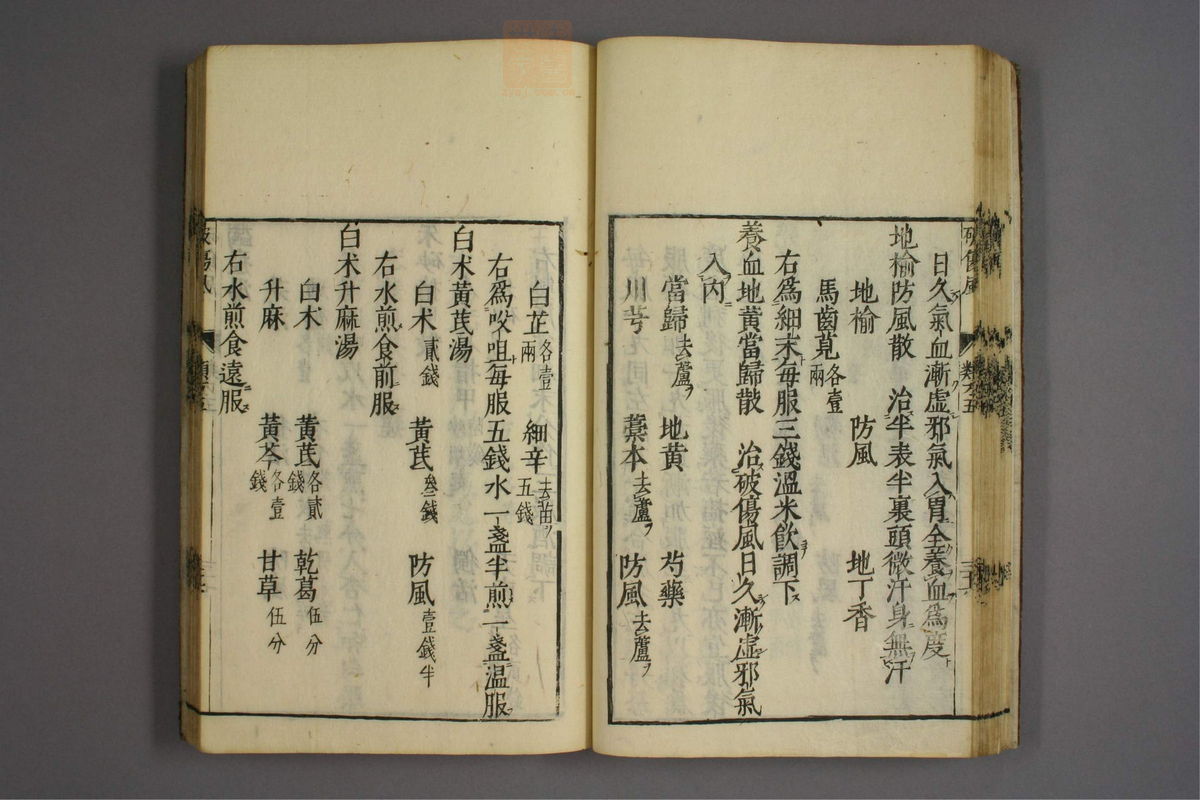 日久氣血漸虛邪氣入胃全養血爲度
地榆防風散 治半表半裏頭微汗身無汗
地榆 防風 地丁香
馬齒莧各壹兩
右爲細末每服三錢溫米飲調下
養血地黃當歸散 治破傷風日久漸虛邪氣
入內
當歸去蘆 地黃 芍藥
川芎 藁本去蘆 防風去蘆
白芷各壹兩 細辛去苗五錢
右爲㕮咀每服五錢水一盞半煎一盞温服
白朮黃芪湯
白朮貳錢 黃芪叁錢 防風壹錢半
右水煎食前服
白朮升麻湯
白朮 黃芪各貳錢 乾葛伍分
升麻 黃芩各壹錢 甘草伍分
右水煎食遠服